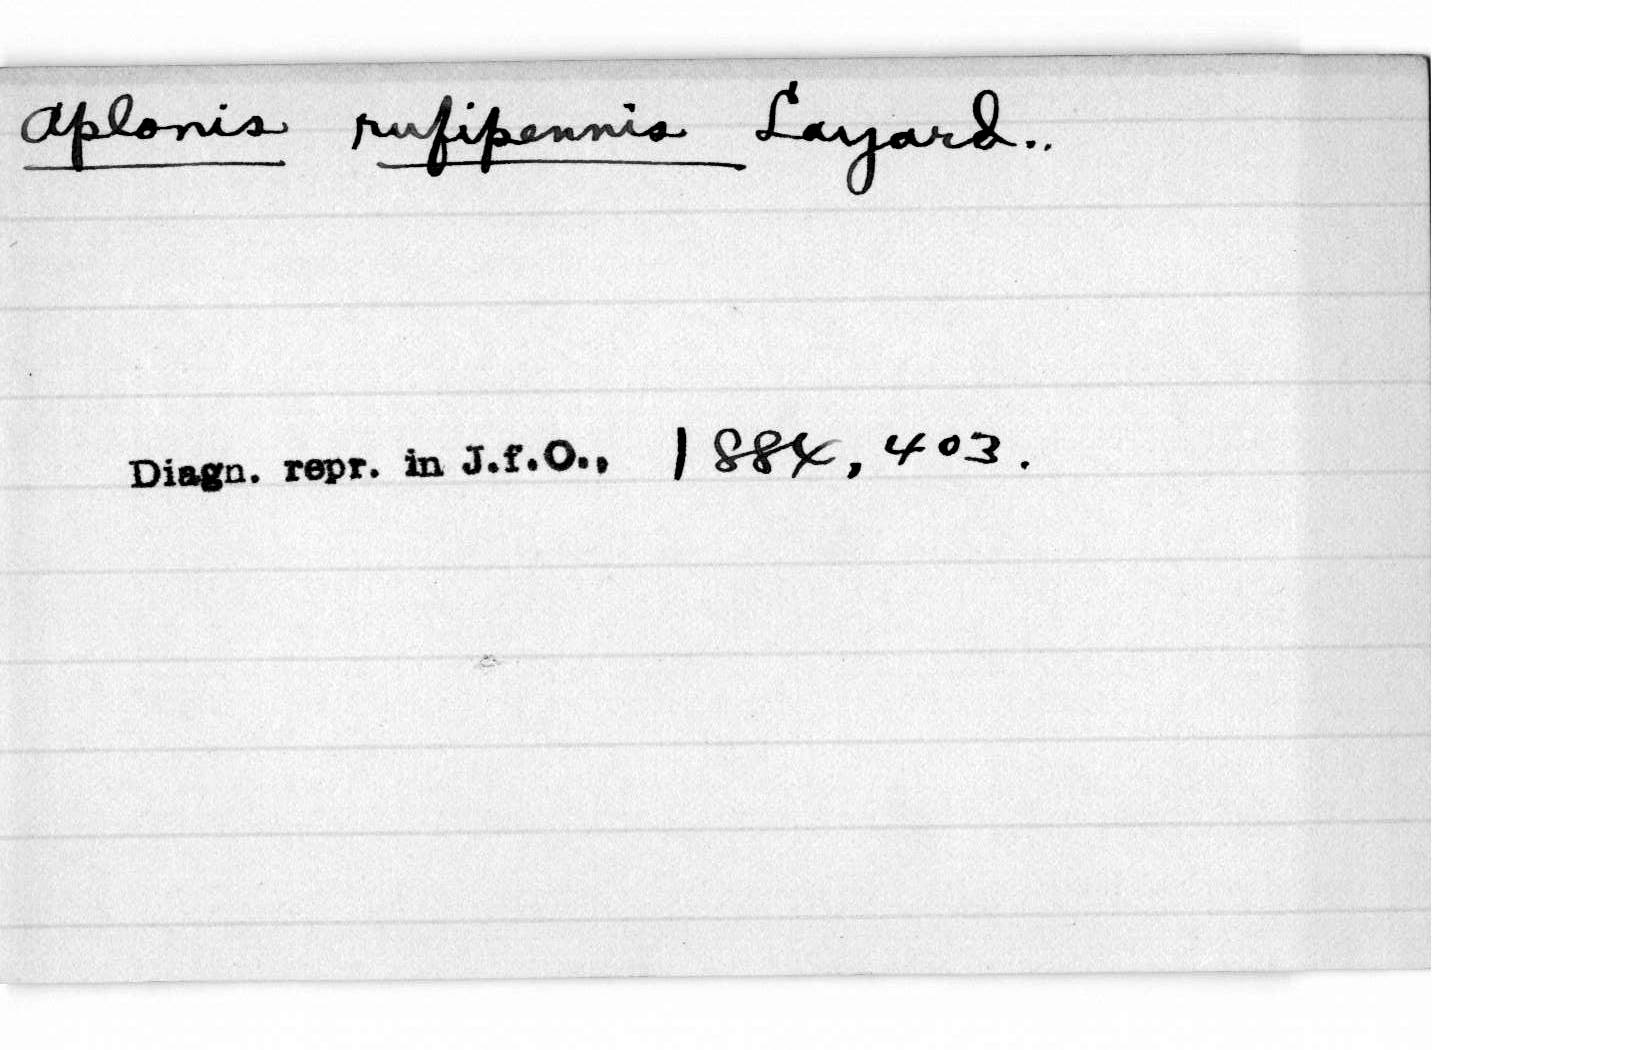 Aplonis rufipennis Layard..
Diagn. repr. in J.f.O., 1884, 403.